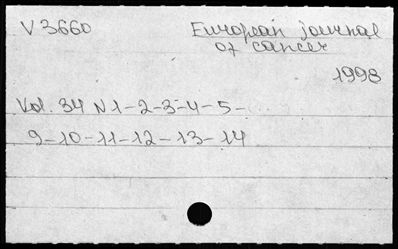 V 3660 European journal
of cancer
1998
Vol. 34 N 1-2-3-4-5-
9-10-11-12-13-14